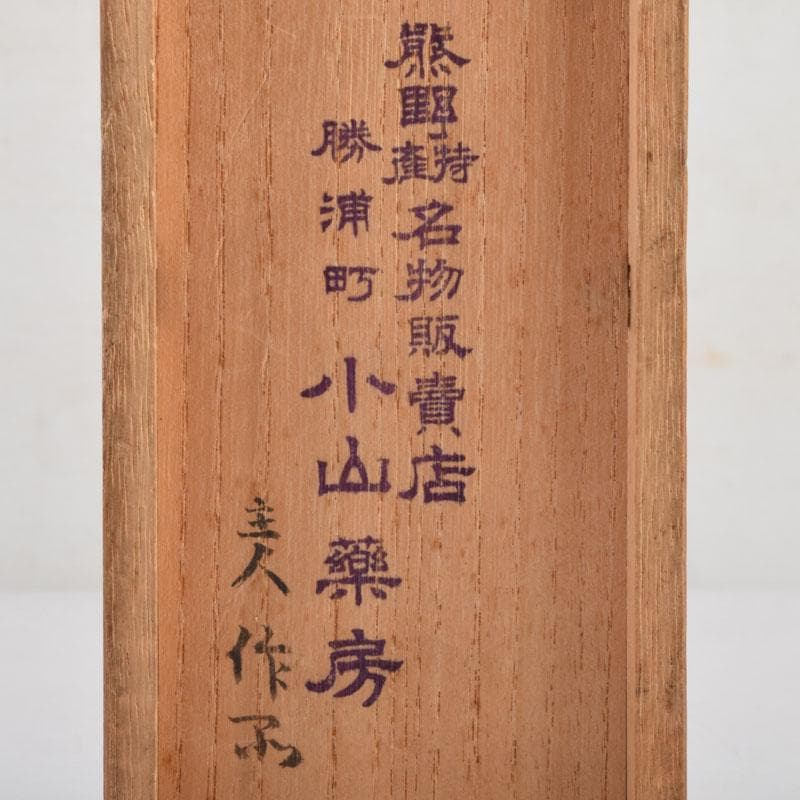 熊野特産名物販賣店
勝浦町小山藥房
主人作